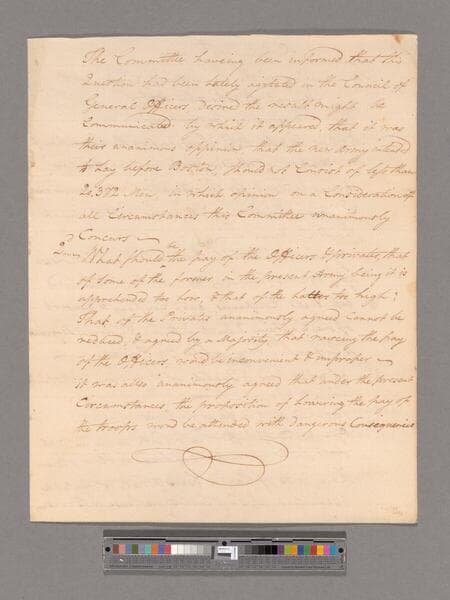 The Committee having been informed that this
Question had been lately agitated in the Council of
General Officers desired the result might be
Communicated by which it appeared that it was
their unanimous oppinion, that the new Army intended
to lay before Boston, should not Consist of less than
20.372 Men, in which opinion on a Consideration of
all Circumstances this Committee unanimously
Concurs
2 What should the pay of the Officers & privates, that
of some of the former in the present Army being it is
apprehended too low, & that of the latter too high?
That of the Privates unanimously agreed Cannot be
reduced, & agreed by a Majority that raising the pay
of the Officers would be inconvenient & improper
it was also unanimously agreed that under the present
Circumstances, the proposition of lowering the pay of
the troops would be attended with dangerous Consequences